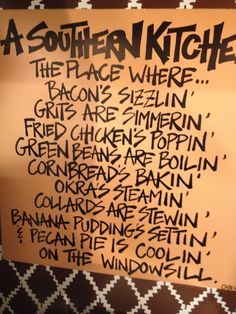 A SOUTHERN KITCHE
THE PLACE WHERE...
BACON'S SIZZLIN'
GRITS ARE SIMMERIN'
FRIED CHICKEN'S POPPIN'
GREEN BEANS ARE BOILIN'
CORNBREAD'S BAKIN'
OKRA'S STEAMIN'
COLLARDS ARE STEWIN'
BANANA PUDDINGS SETTIN'
& PECAN PIE IS COOLIN'
ON THE WINDOWSILL.